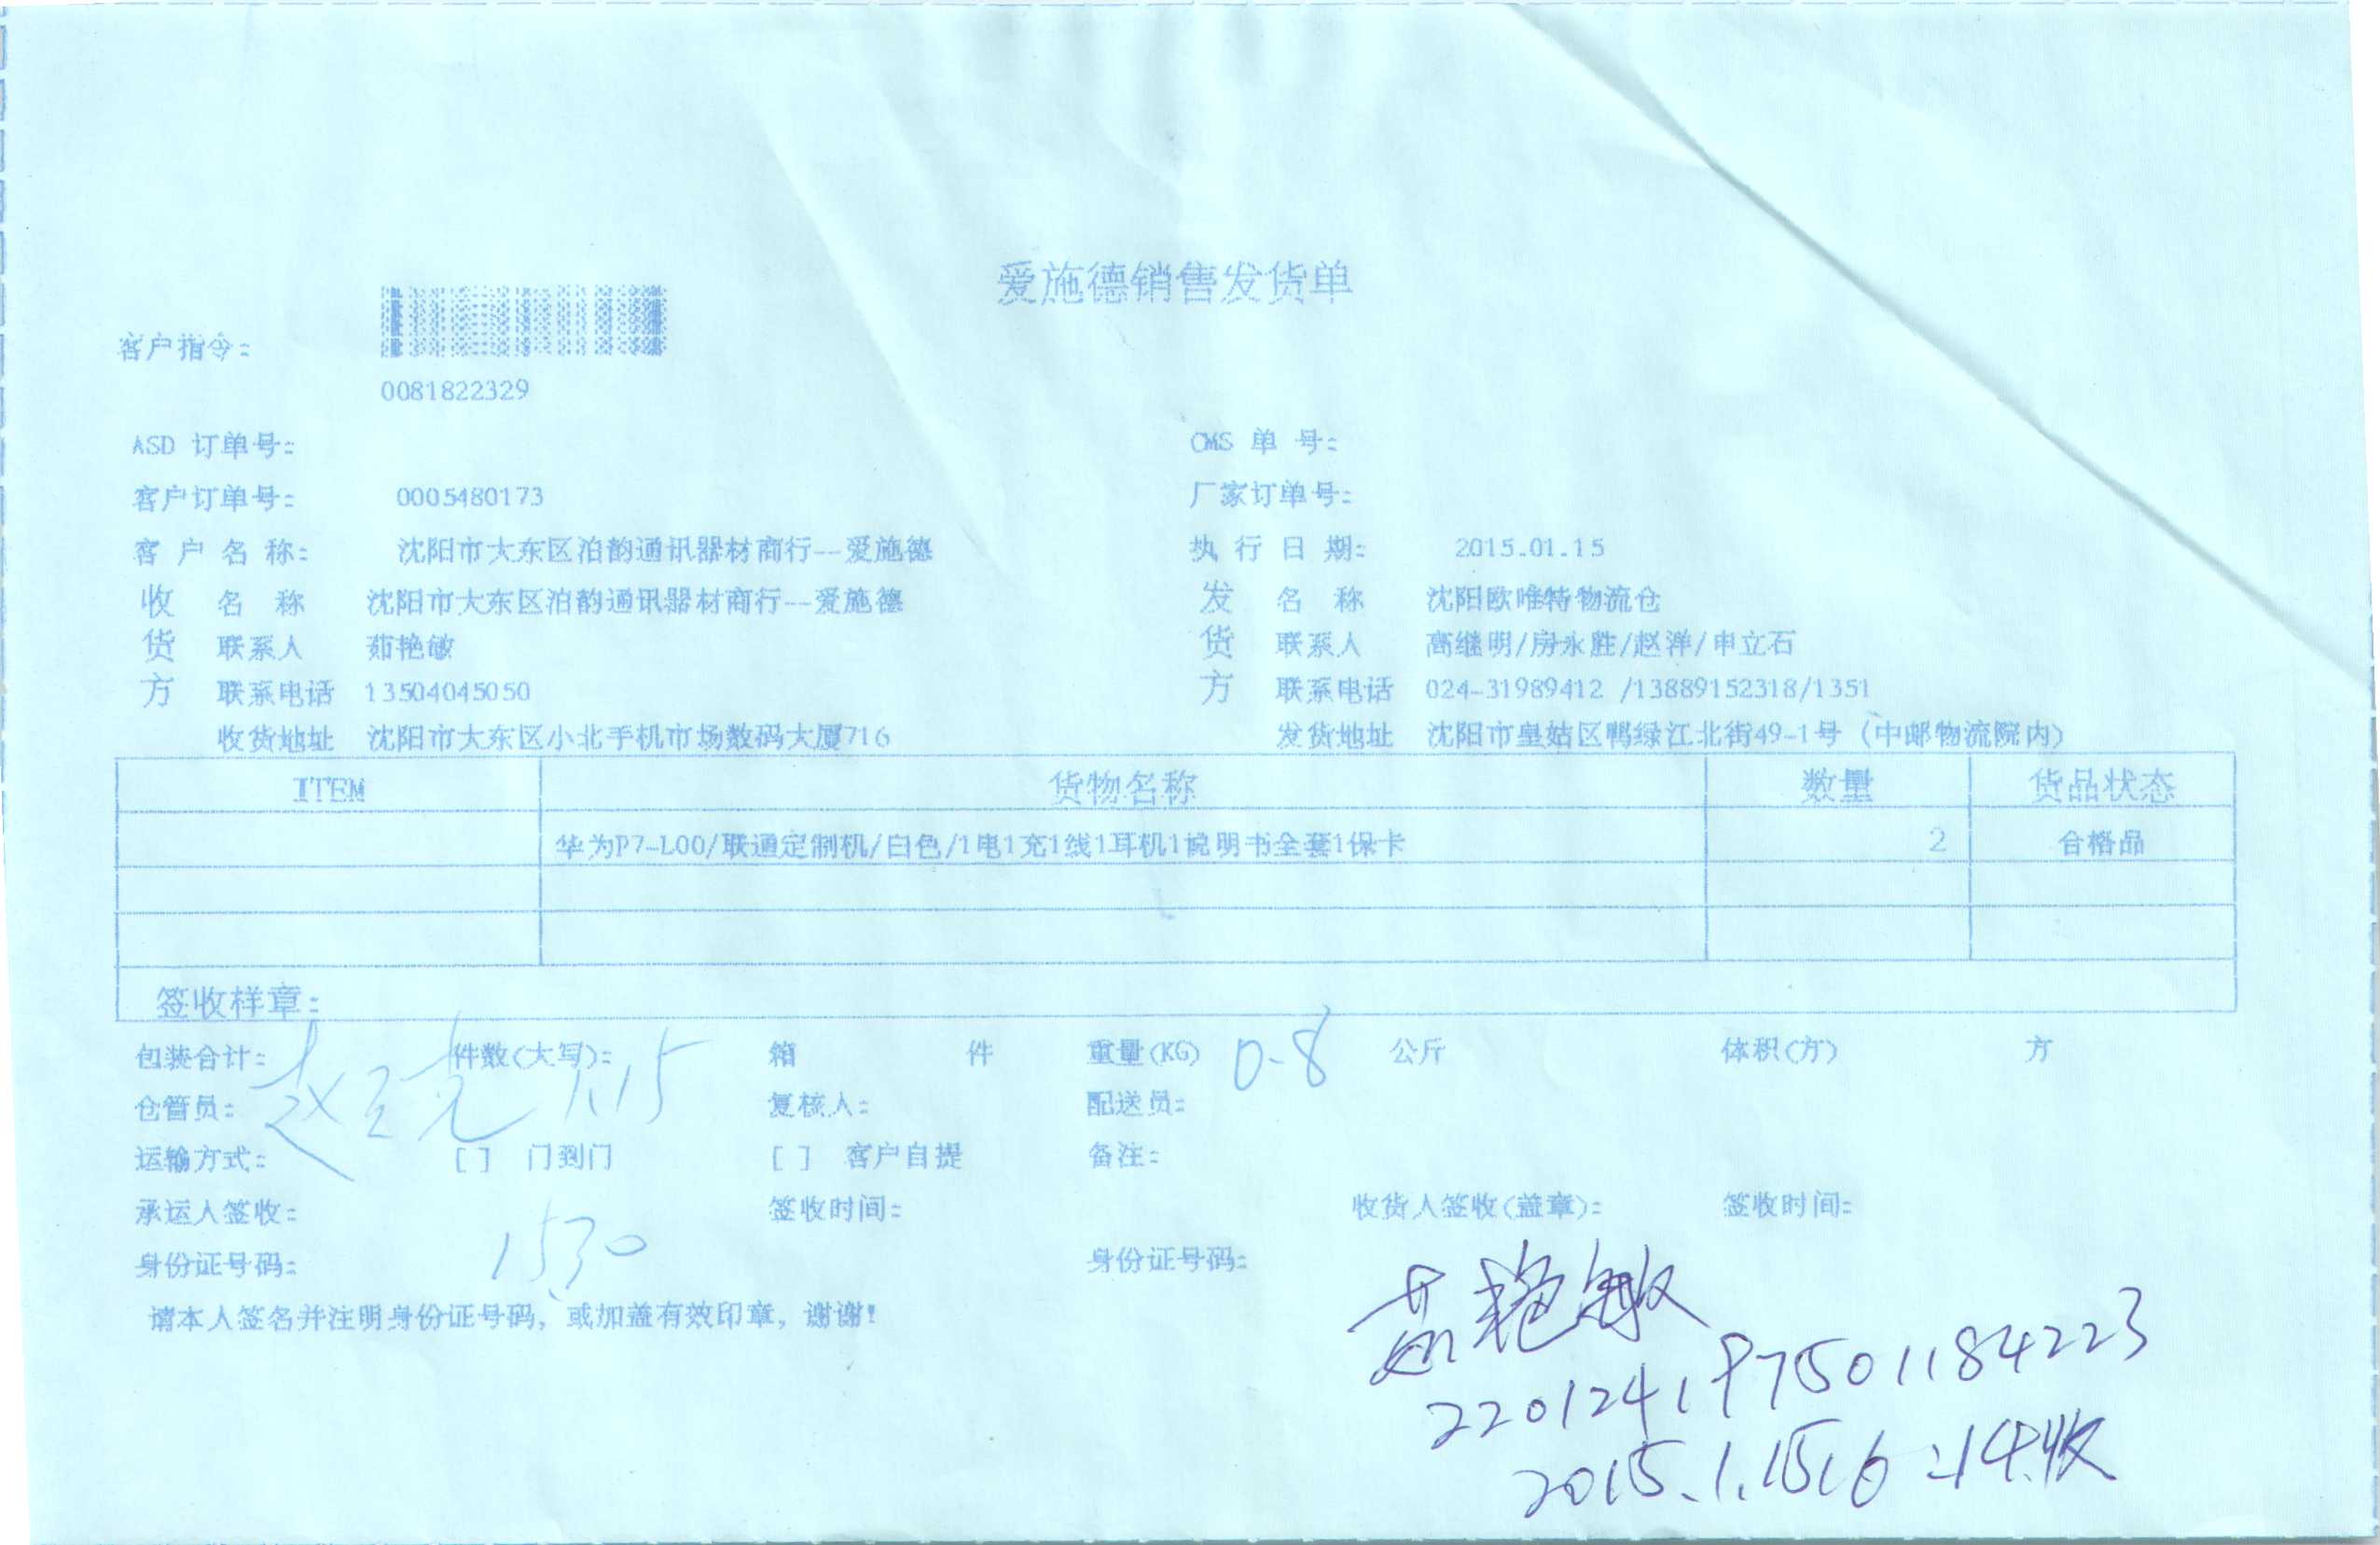 爱施德销售发货单
客户指令:
0081822329
ASD 订单号: CMS 单 号:
客户订单号: 0005480173 厂家订单号:
客 户 名 称: 沈阳市大东区泊韵通讯器材商行--爱施德 执 行 日 期: 2015.01.15
收 名 称 沈阳市大东区泊韵通讯器材商行--爱施德 发 名 称 沈阳欧唯特物流仓
货 联系人 茹艳敏 货 联系人 高继明/房永胜/赵洋/申立石
方 联系电话 13504045050 方 联系电话 024-31989412 /13889152318/1351
收货地址 沈阳市大东区小北手机市场数码大厦716 发货地址 沈阳市皇姑区鸭绿江北街49-1号 (中邮物流院内)
ITEM 货物名称 数量 货品状态
华为P7-L00/联通定制机/白色/1电1充1线1耳机1说明书全套1保卡 2 合格品
签收样章:
包装合计: 件数(大写): 箱 件 重量(KG) 0.8 公斤 体积(方) 方
仓管员: 1.15 复核人: 配送员:
运输方式: [ ] 门到门 [ ] 客户自提 备注:
承运人签收: 签收时间: 收货人签收(盖章): 签收时间:
身份证号码: 1530 身份证号码:
茹艳敏
请本人签名并注明身份证号码, 或加盖有效印章, 谢谢!
220124197501184223
2015.1.15 16:14收